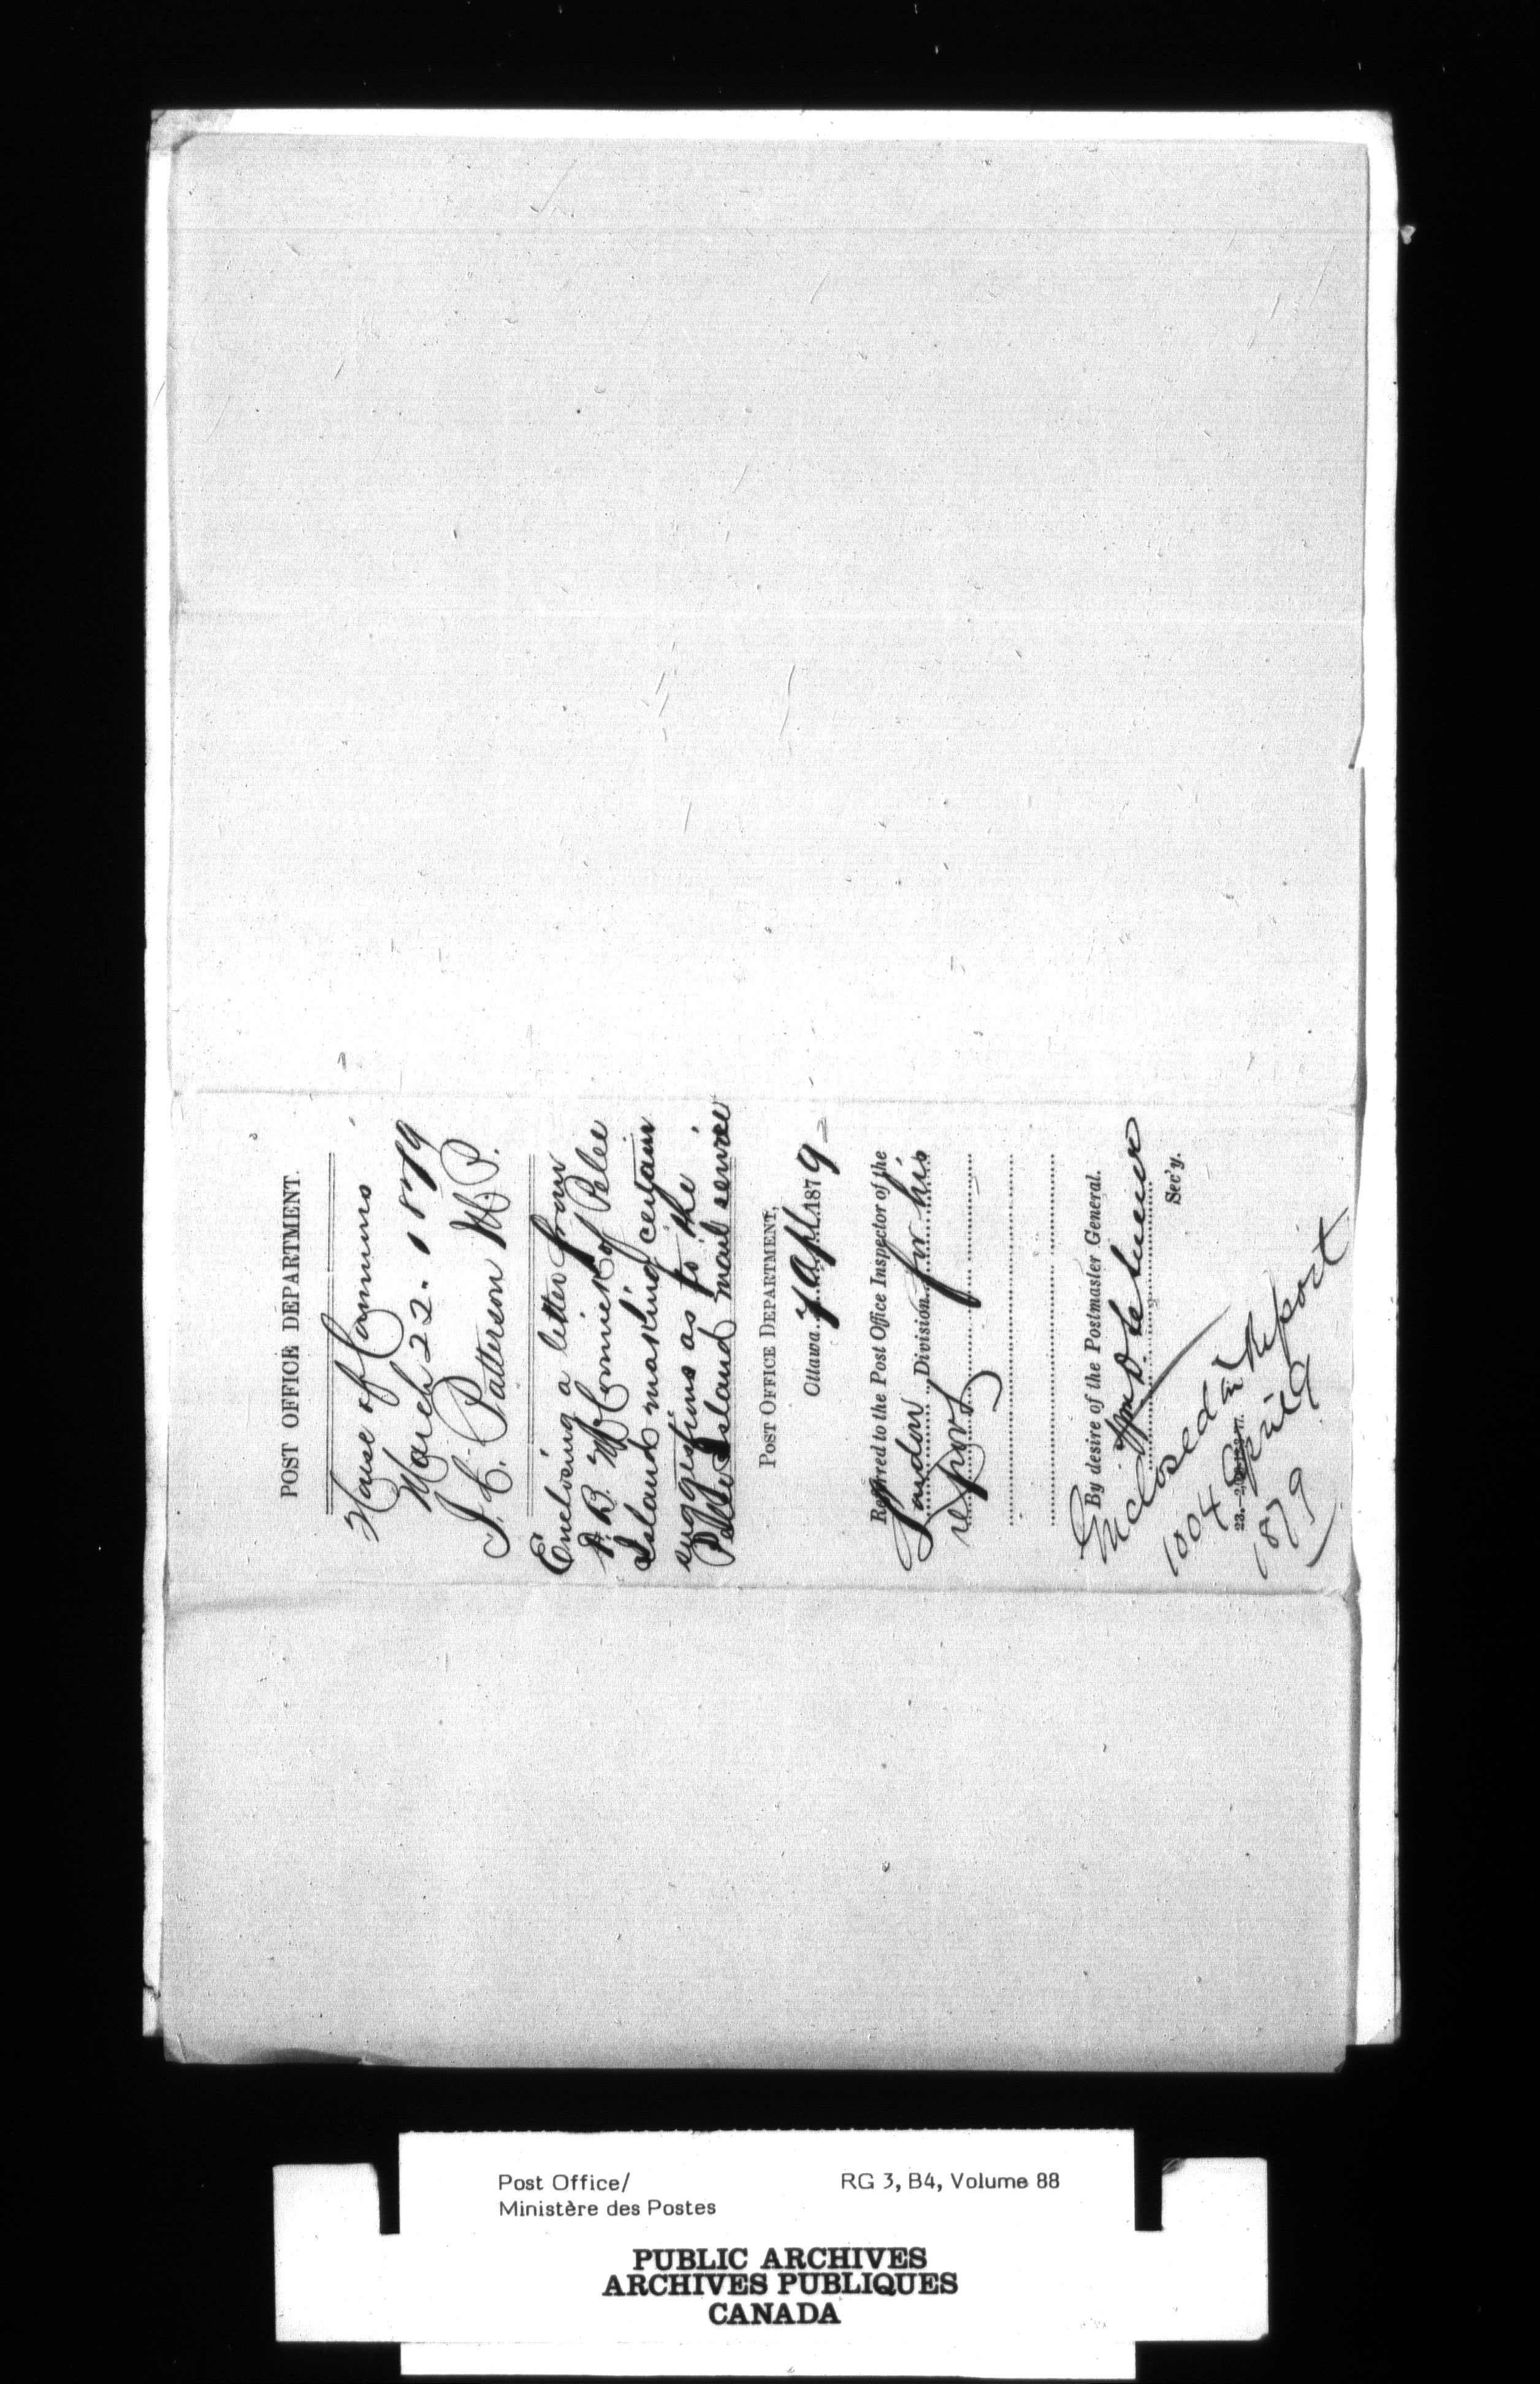 POST OFFICE DEPARTMENT.
House of Commons
March 22. 1879
J. C. Patterson M. P.
Enclosing a letter from
A. B. McCormick of Pelee
Island making certain
suggestions as to the
Pelee Island mail service
POST OFFICE DEPARTMENT,
Ottawa 7 Apl 1879
Referred to the Post Office Inspector of the
London Division for his
report
By desire of the Postmaster General.
Wm D. LeSueur
Sec'y.
Enclosed in Report
1004 April 9
1879
Post Office/
Ministère des Postes
RG 3, B4, Volume 88
PUBLIC ARCHIVES
ARCHIVES PUBLIQUES
CANADA